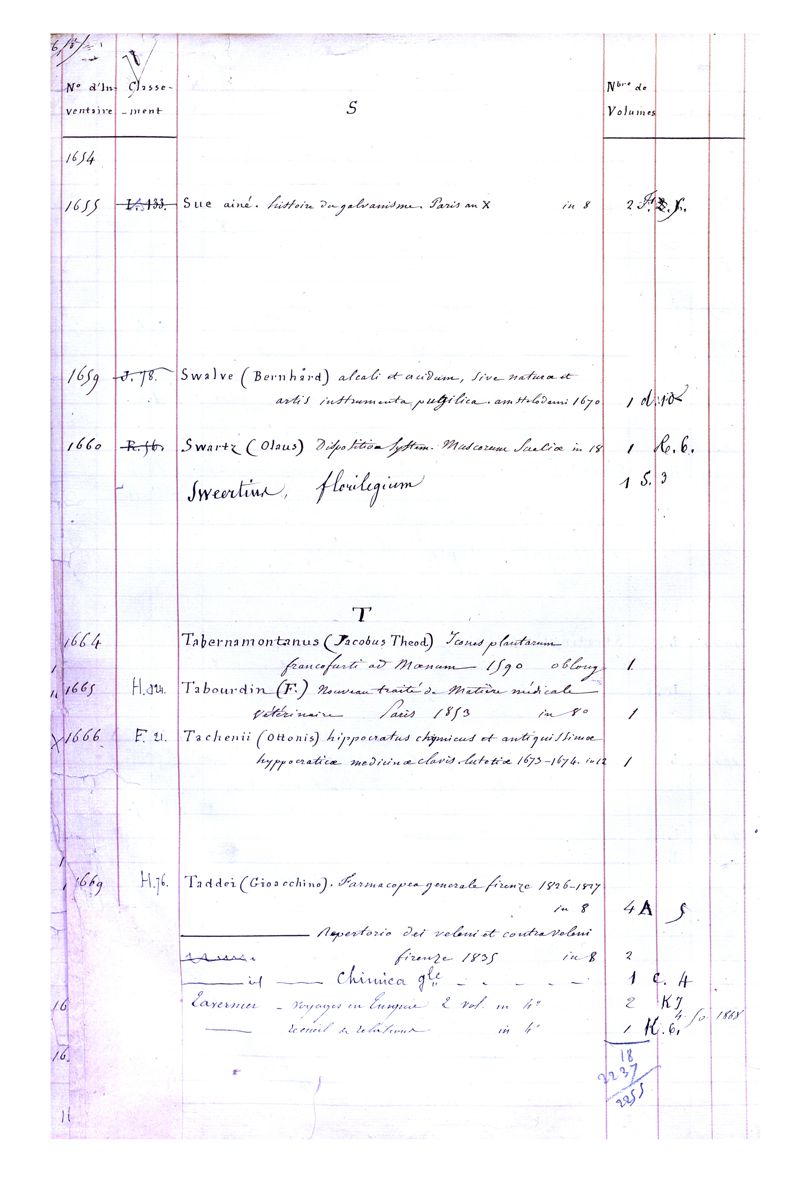 No d'In- Classe- Nbre de
ventaire -ment S Volumes
1654
1655 V. 133. Sue ainé. histoire du galvanisme. Paris an X in 8 2
1659 J. 78. Swalve (Bernhard) alcali et acidum, sive naturæ et
artis instrumenta pugilica. amstelodami 1670 1
1660 R. 56. Swartz (Olaus) Dispositio System. Muscorum Sueciæ in 18 1 R. 6.
Sweertius, florilegium 1 S. 3
T
1664 Tabernamontanus (Jacobus Theod) Icones plantarum
francofurti ad Mœnum 1590 oblong 1.
1665 H. 124. Tabourdin (F.) Nouveau traité de Matière médicale
vétérinaire Paris 1853 in 8o 1
1666 F. 21. Tachenii (Ottonis) hippocratus chymicus et antiquissimæ
hyppocraticæ medicinæ clavis. lutetiæ 1673-1674. in 12 1
1669 H. 76. Taddei (Gioacchino). Farmacopea generale firenze 1826-1827
in 8 4 A 5
Repertorio dei veleni et contraveleni
firenze 1835 in 8 2
id Chimica gle 1 C. 4
Tavernier - voyages en Turquie 2 vol. in 4o 2 K 7
recueil de relations in 4o 1 K. 6.
16
16. 18
2237
2255